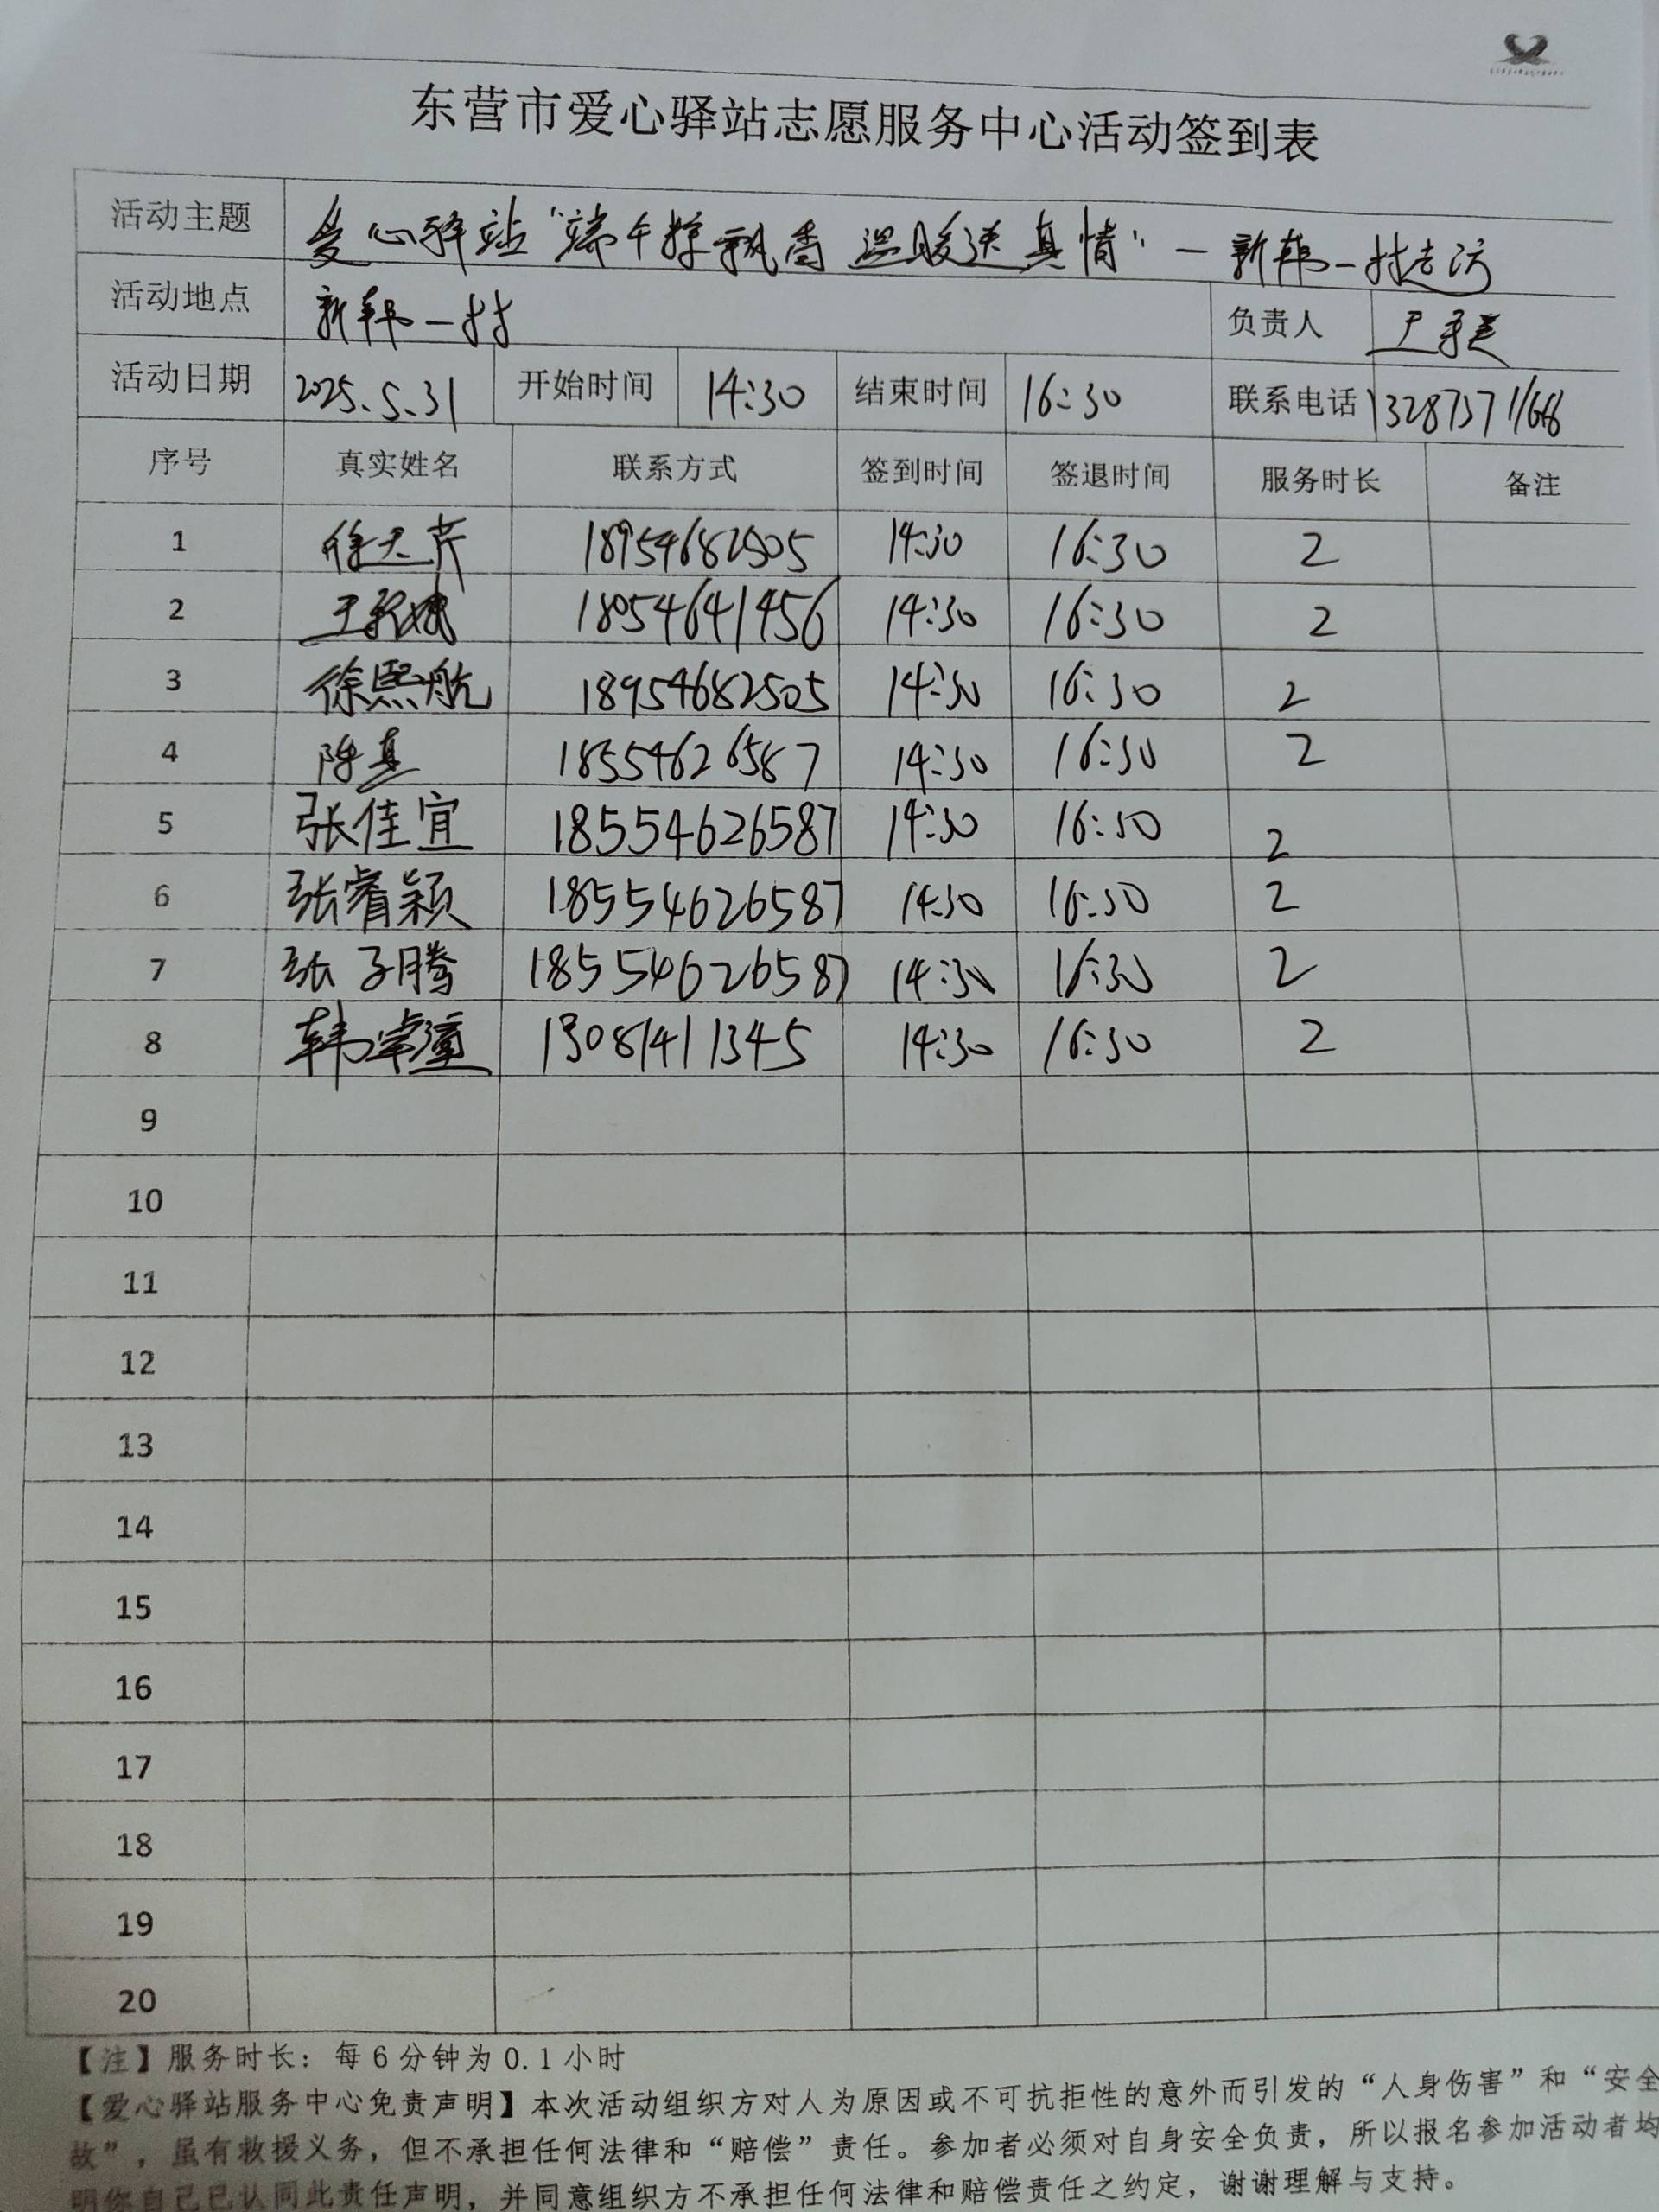 东营市爱心驿站志愿服务中心活动签到表
活动主题 爱心驿站“端午粽飘香 温暖送真情”—新韩一村走访
活动地点 新韩一村 负责人
活动日期 2025.5.31 开始时间 14:30 结束时间 16:30 联系电话 13287371168
序号 真实姓名 联系方式 签到时间 签退时间 服务时长 备注
1 18954682505 14:30 16:30 2
2 18054641456 14:30 16:30 2
3 徐熙航 18954682505 14:30 16:30 2
4 陈真 18554626587 14:30 16:30 2
5 张佳宜 18554626587 14:30 16:30 2
6 张睿颖 18554626587 14:30 16:30 2
7 张子腾 18554626587 14:30 16:30 2
8 韩 13081411345 14:30 16:30 2
9
10
11
12
13
14
15
16
17
18
19
20
【注】服务时长：每6分钟为0.1小时
【爱心驿站服务中心免责声明】本次活动组织方对人为原因或不可抗拒性的意外而引发的“人身伤害”和“安全
故”，虽有救援义务，但不承担任何法律和“赔偿”责任。参加者必须对自身安全负责，所以报名参加活动者均
明你自己已认同此责任声明，并同意组织方不承担任何法律和赔偿责任之约定，谢谢理解与支持。